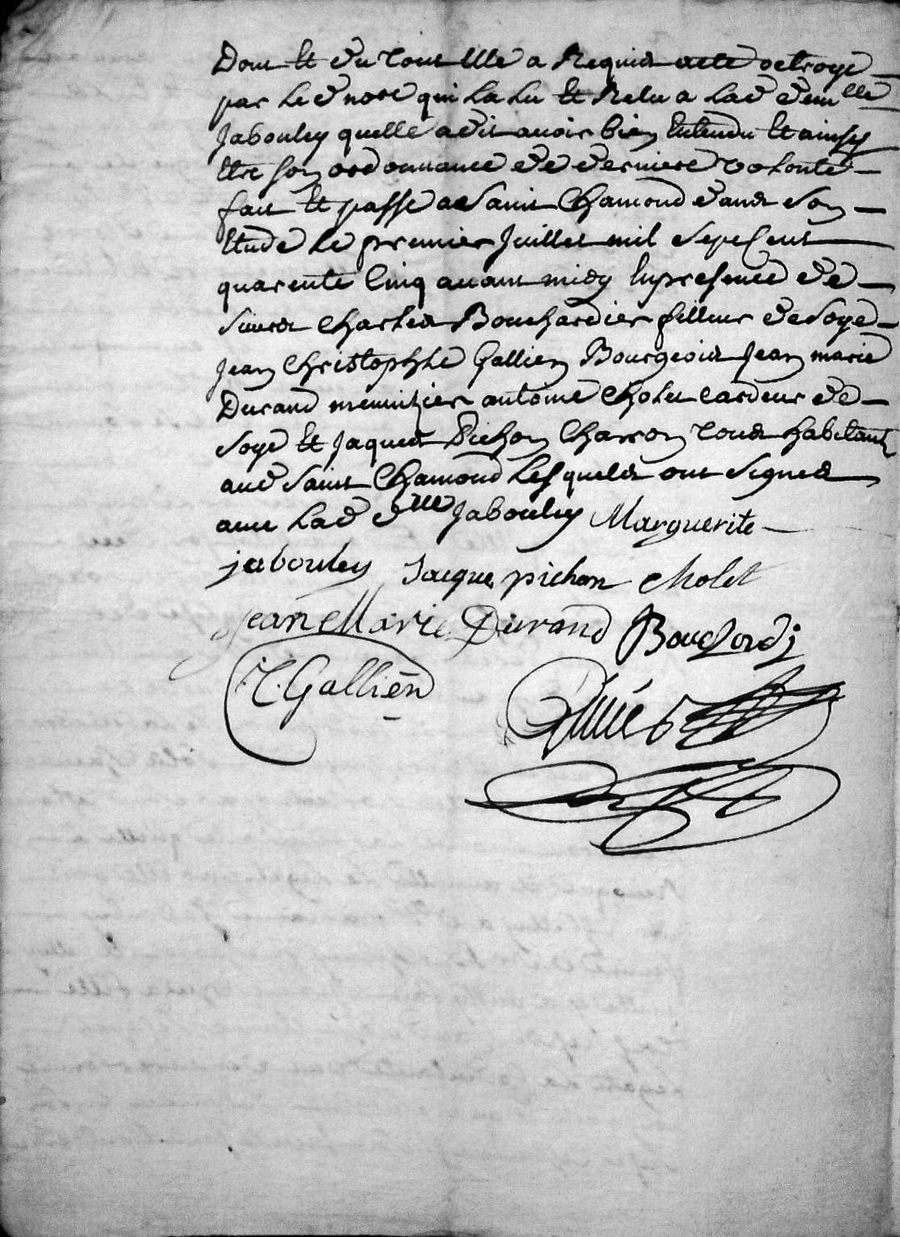 Dont et du tout elle a Requis acte octroyé
par led nore qui la lu et Relu a lad demlle
Jabouley quelle a dit avoir bien Entendu et ainsy
Etre son ordonnance de derniere volonté
fait et passé a Saint Chamond dans Son
Etude le premier Juillet mil Sept Cent
quarente Cinq avant midy En presence de
Sieurs Charles Bouchardier filleur de Soye
Jean Christophle Gallien Bourgeois Jean marie
Durand menuizier antoine Cholet cardeur de
Soye et Jaques Pichon Charron tous habitant
aud Saint Chamond Lesquels ont Signes
avec lad dlle Jabouley Marguerite
jabouley Jacque pichon Cholet
Jean Marie Durand Bouchardi
J.C. Gallien